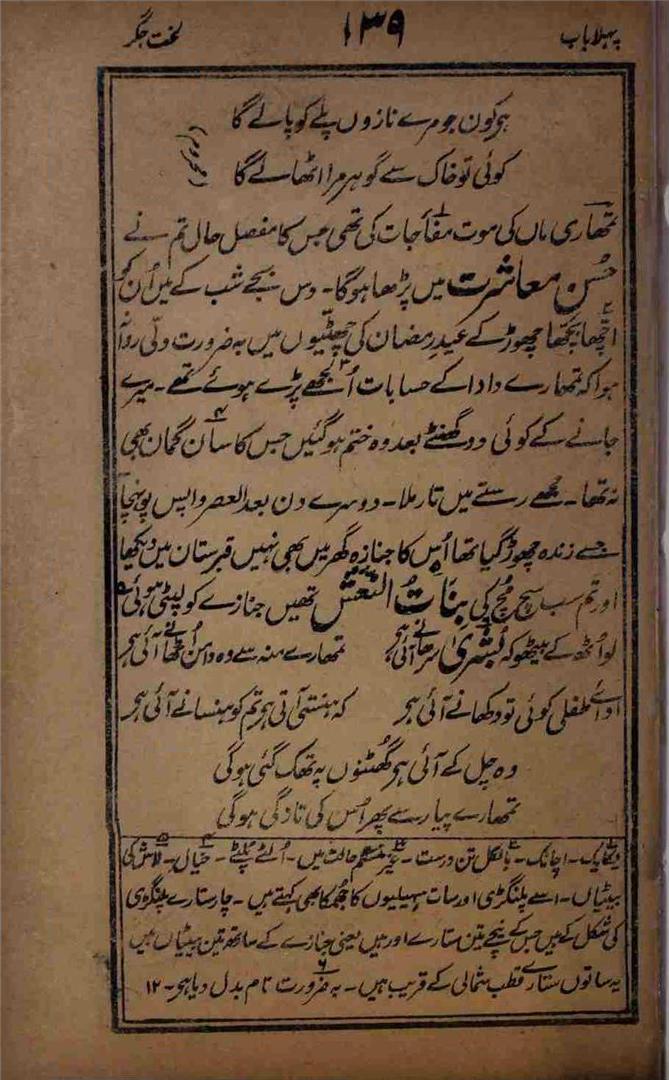 پہلا باب ۱۳۹ لخت جگر
ہر کون جو مرے نازوں پلے کو پالے گا
کوئی تو خاک سے گوہر مرا اٹھا لے گا (محروم)
تمھاری ماں کی موت مفاجات کی تھی جس کا مفصل حال تم نے
حُسنِ معاشرت میں پڑھا ہوگا۔ دس بجے شب کے میں اُن کو
اچھا بچھا چھوڑ کے عید رمضان کی چھٹیوں میں بہ ضرورت دلّی روانہ
ہوا کہ تمھارے دادا کے حسابات اُلجھے پڑے ہوئے تھے۔ میرے
جانے کے کوئی دو گھنٹے بعد وہ ختم ہو گئیں جس کا سان گمان بھی
نہ تھا۔ مجھے رستے میں تار ملا۔ دوسرے دن بعد العصر واپس پونہچا
جسے زندہ چھوڑ گیا تھا اُس کا جنازہ گھر میں بھی نہیں قبرستان میں دیکھا
اور تم سب سچ مُچ کی بنات النعش تھیں جنازے کو لپٹی ہوئی
لو اُٹھ کے بیٹھو کہ بُشریٰ سرھانے آئی ہر تمھارے منہ سے وہ دامن اُٹھانے آئی ہر
اداے طفلی کوئی تو دکھانے آئی ہر کہ ہنستی آتی ہر تم کو ہنسانے آئی ہر
وہ چل کے آئی ہر گھٹنوں پہ تھک گئی ہوگی
تمھارے پیار سے پھر اُس کی تازگی ہوگی
یکایک۔ اچانک۔ بالکل تن درست۔ غیر منتظم حالت میں۔ اُلٹے پلٹے۔ خیال۔ لاش کی
بیٹیاں۔ اسے پلنگڑی اور سات سہیلیوں کا جھمکا بھی کہتے ہیں۔ چار ستارے پلنگڑی
کی شکل کے ہیں جس کے نیچے تین ستارے اور ہیں یعنی جنازے کے ساتھ تین بیٹیاں ہیں
یہ ساتوں ستارے قطب شمالی کے قریب ہیں۔ ۶ بہ ضرورت نام بدل دیا ہر۔ ۱۲